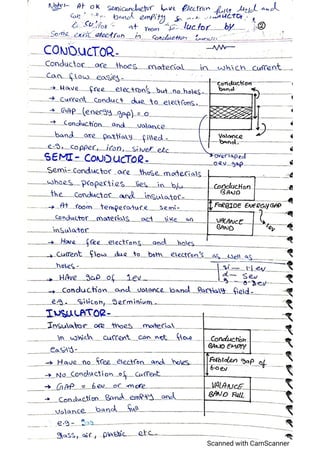 Note- At 0K semiconductor have electron fully filled and
band empty
at room
Some exit electron in conduction band
②
CONDUCTOR-
Conductor are thoes material in which current
can flow easily.
→ Have free electron's but no holes.
→ current conduct due to electrons.
→ GAP (energy gap) = 0
→ Conduction and valance
band are partialy filled.
e.g. copper, iron, silver etc
Conduction
band
Valance
band.
→ overlaped
oev gap
SEMI - CONDUCTOR-
Semi-conductor are those materials
whoes properties lies in b/w
the conductor and insulator.
→ At room temperature semi-
conductor materials act like an
insulator
→ Have free electrons and holes
→ current flow due to both electron's as well as
holes.
→ HAVe GAP of 1ev
→ conduction and valance band Partialy field.
e.g. Silicon, Germinium.
Conduction
BAND
FORBIDE ENERGY GAP
VALANCE
BAND
1ev
INSULATOR-
Insulator are thoes material
in which current can not flow
easily.
→ Have no free electron and holes
→ No Conduction of current
→ GAP = 6ev or more
→ Conduction Band empty and
valance band full
e.g-
glass, air, plastic etc.
Conduction
BAND EMPTY
Forbidden gap of
6.0ev
VALANCE
BAND FULL
Scanned with CamScanner